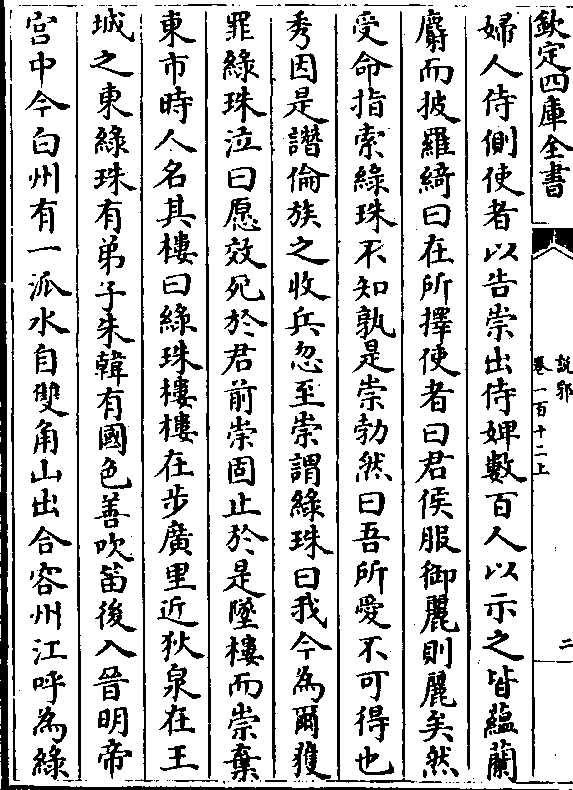 欽定四庫全書
說郛
卷一百十二上
二
婦人侍側使者以告崇出侍婢數百人以示之皆蘊蘭
麝而披羅綺曰在所擇使者曰君侯服御麗則麗矣然
受命指索綠珠不知孰是崇勃然曰吾所愛不可得也
秀因是譖倫族之收兵忽至崇謂綠珠曰我今為爾獲
罪綠珠泣曰愿效死於君前崇固止於是墜樓而崇棄
東市時人名其樓曰綠珠樓樓在步廣里近狄泉在王
城之東綠珠有弟子朱韓有國色善吹笛後入晉明帝
宮中今白州有一派水自雙角山出合容州江呼為綠